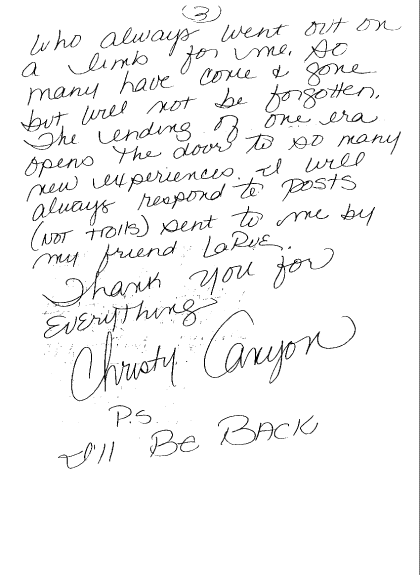 (3)
who always went out on
a limb for me. So
many have come & gone
but will not be forgotten.
The ending of one era
opens the door to so many
new experiences. I will
always respond to posts
(NOT trolls) sent to me by
my friend LaRue.
Thank you for
Everything
Christy Canyon
P.S.
I'll BE BACK